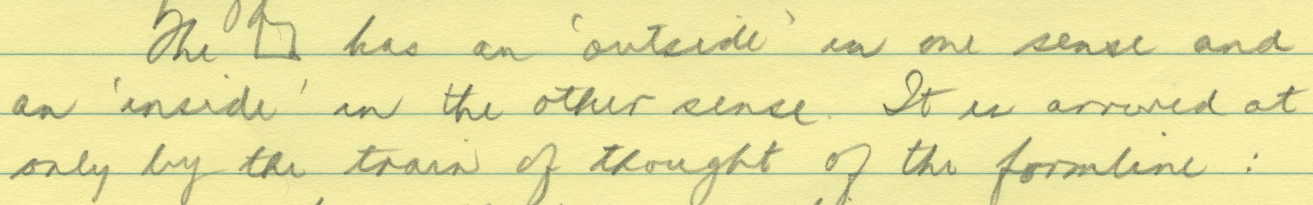 The has an 'outside' in one sense and
an 'inside' in the other sense. It is arrived at
only by the train of thought of the formline :